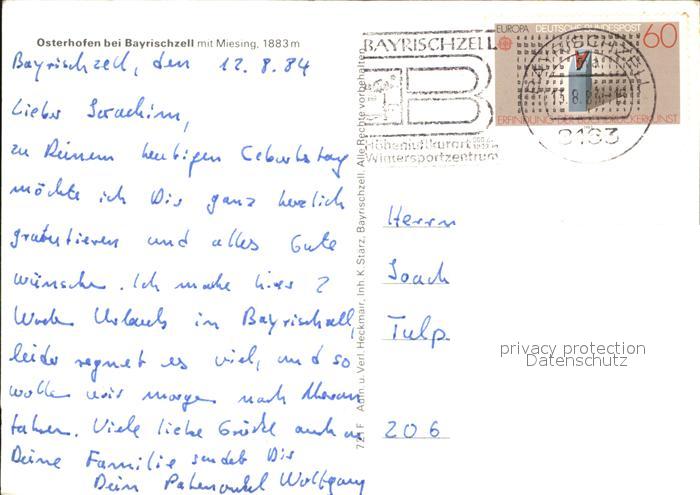 Osterhofen bei Bayrischzell mit Miesing, 1883 m
Bayrischzell, den 12.8.84
Lieber Joachim,
zu Deinem heutigen Geburtstag
möchte ich Dir ganz herzlich
gratulieren und alles Gute
wünschen. Ich mache hier 2
Wochen Urlaub in Bayrischzell,
leider regnet es viel, und so
wollen wir morgen nach Meran
fahren. Viele liebe Grüße auch an
Deine Familie sendet Dir
Dein Patenonkel Wolfgang
721 F Aufn. u. Verl. Heckmair, Inh. K. Starz, Bayrischzell. Alle Rechte vorbehalten
BAYRISCHZELL
B
Höhenluftkurort
Wintersportzentrum
EUROPA DEUTSCHE BUNDESPOST 60
ERFINDUNG DER BUCHDRUCKERKUNST
BAYRISCHZELL
13.8.8
8163
Herrn
Joach
Tulp
206
privacy protection
Datenschutz